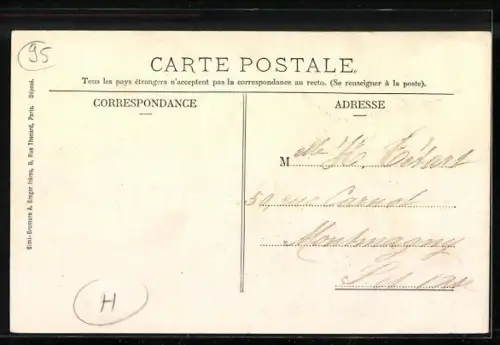 95
CARTE POSTALE
Tous les pays étrangers n'acceptent pas la correspondance au recto. (Se renseigner à la poste).
CORRESPONDANCE
ADRESSE
Melle H.
50, rue Carnot
Montmagny
H
Simi-Bromure A. Breger frères, 9, Rue Thenard, Paris. Déposé.